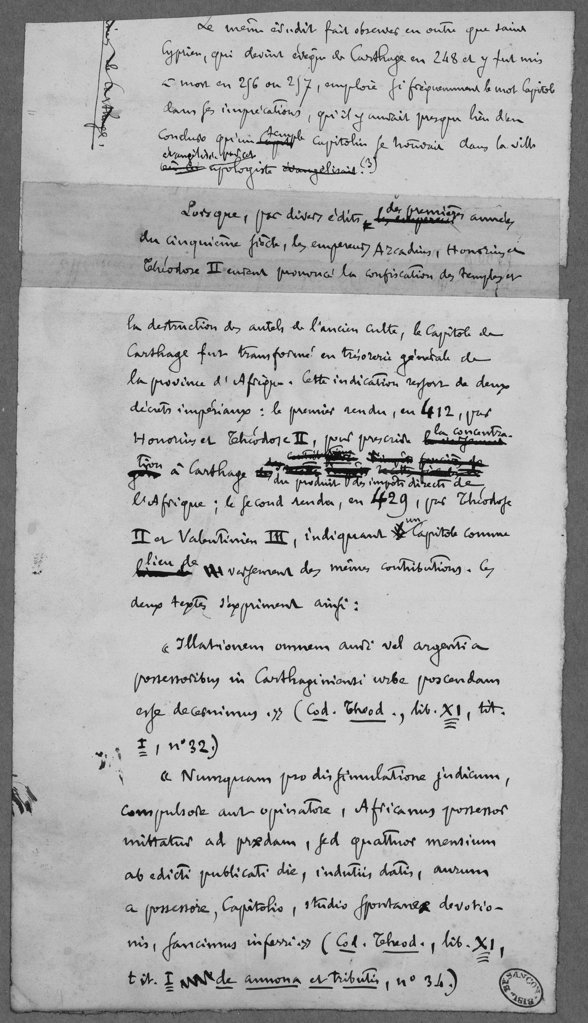 Le même érudit fait observer en outre que saint
Cyprien, qui devint évêque de Carthage en 248 et y fut mis
à mort en 256 ou 257, emploie si fréquemment le mot Capitole
dans ses imprécations, qu'il y aurait presque lieu d'en
conclure qu'un temple Capitolin se trouvait dans la ville
apologiste évangélisait. (3)
Lorsque, par divers édits, des premières années
du cinquième siècle, les empereurs Arcadius, Honorius et
Théodose II eurent prononcé la confiscation des temples et
la destruction des autels de l'ancien culte, le Capitole de
Carthage fut transformé en trésorerie générale de
la province d'Afrique. Cette indication ressort de deux
décrets impériaux : le premier rendu, en 412, par
Honorius et Théodose II, pour prescrire la concentra-
tion à Carthage du produit des impôts directs de
l'Afrique ; le second rendu, en 429, par Théodose
II et Valentinien III, indiquant un Capitole comme
lieu de versement des mêmes contributions. Ces
deux textes s'expriment ainsi :
« Illationem omnem auri vel argenti a
possessoribus in Carthaginiensi urbe poscendam
esse decernimus. » (Cod. Theod., lib. XI, tit.
I, n° 32.)
« Numquam pro dissimulatione judicum,
compulsore aut opinatore, Africanus possessor
mittatur ad prædam, sed quattuor mensium
ab edicti publicati die, indutiis datis, aurum
a possessore, Capitolio, studio spontaneæ devotio-
nis, sancimus inferri. » (Cod. Theod., lib. XI,
tit. I de annona et tributis, n° 34.)
BESANÇON
BIBL.